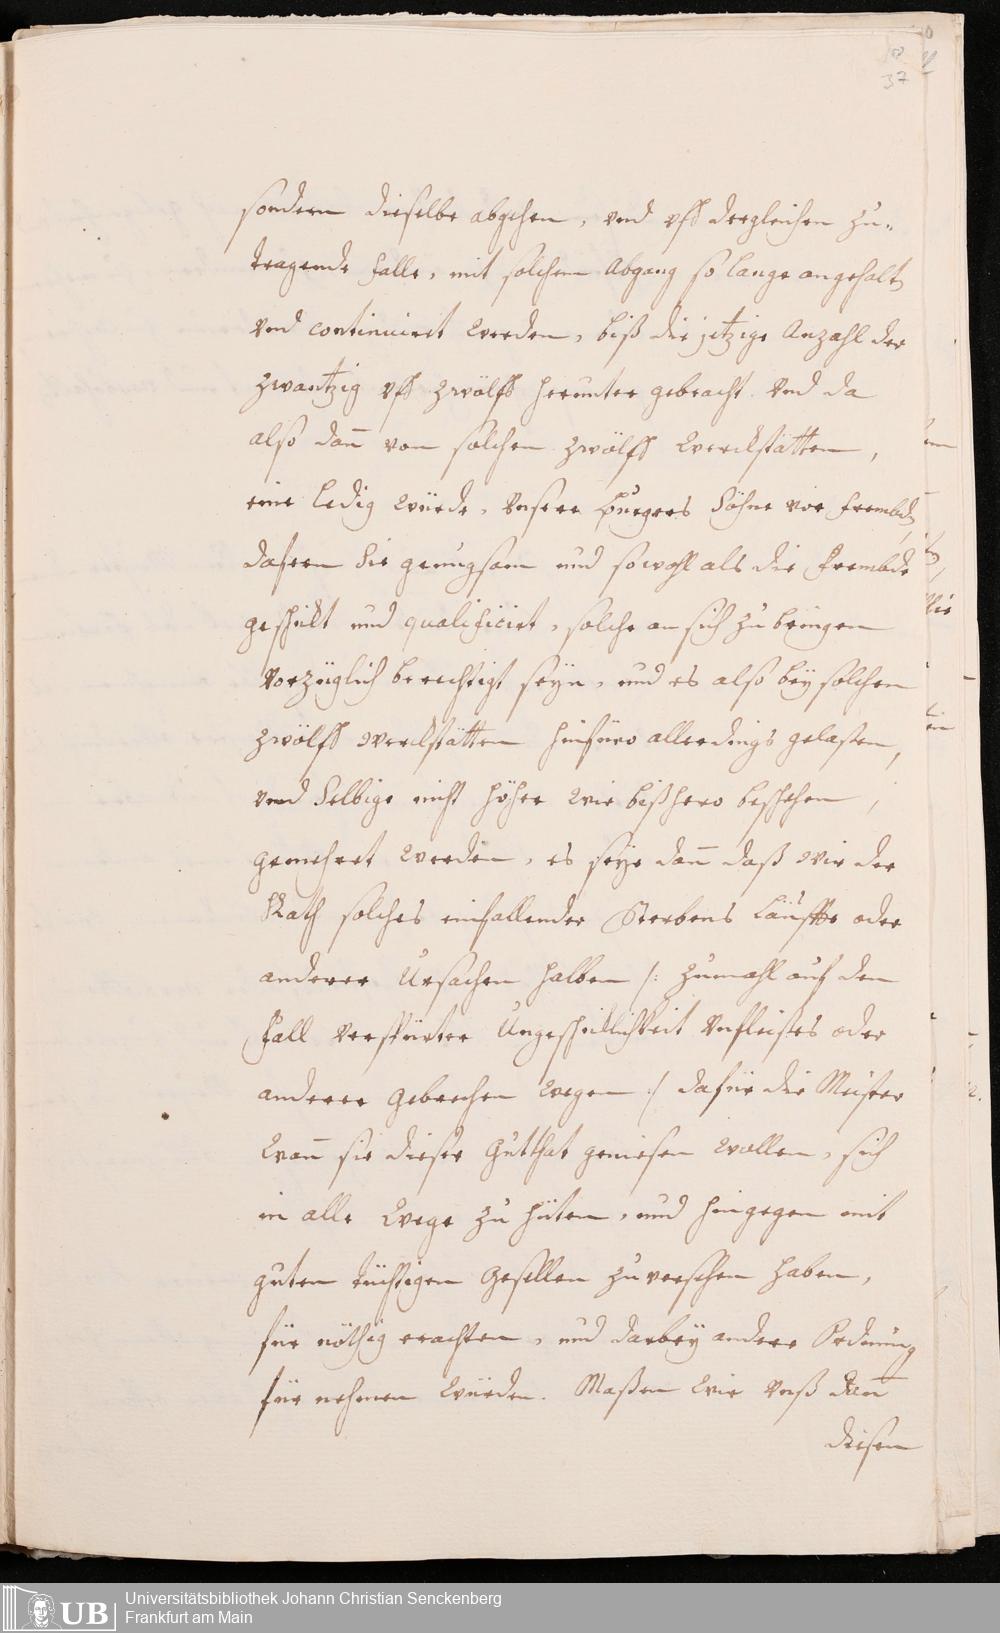 37
sondern dieselbe abgehen, vnd vff dergleichen zu„
tragende Falle, mit solchem Abgang so lange angehalt
vnd continuiret werden, biß die jetzige Anzahl der
zwantzig vff zwölff herunter gebracht. Vnd da
also dan̄ von solchen zwölff Werckstätten,
eine ledig würde, Vnsere Burgers Söhne vor Frembd
dafern Sie genugsam und sowohl als die Frembde
geschikt und qualificirt, solche an sich zu bringen
Vorzüglich berechtigt seyn, und es also beÿ solchen
zwölff Werckstätten hinfüro allerdings gelaßen,
vnd Selbige nicht höher wie bißhero beschehen,
gemehret werden, es seÿe dan̄ daß wir der
Rath solches einfallender Sterbens Läuffte oder
anderer Ursachen halben /: zumahl auf den
Fall verspürter Ungeschicklichkeit Vnfleißes oder
anderer Gebrechen wegen :/ dafür die Meister
Wan̄ sie dieser Gutthat geniesen wollen, sich
in alle Wege zu hüten, und hingegen mit
guten tüchtigen Gesellen zu versehen haben,
für nöthig erachten, und darbeÿ andere Ordnung
für nehmen würden. Maßen wir Vnß dan̄
diesen
UB Universitätsbibliothek Johann Christian Senckenberg
Frankfurt am Main